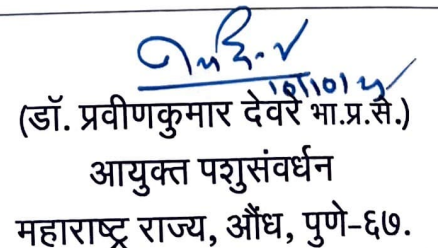 (डॉ. प्रवीणकुमार देवरे भा.प्र.से.)
आयुक्त पशुसंवर्धन
महाराष्ट्र राज्य, औंध, पुणे-६७.